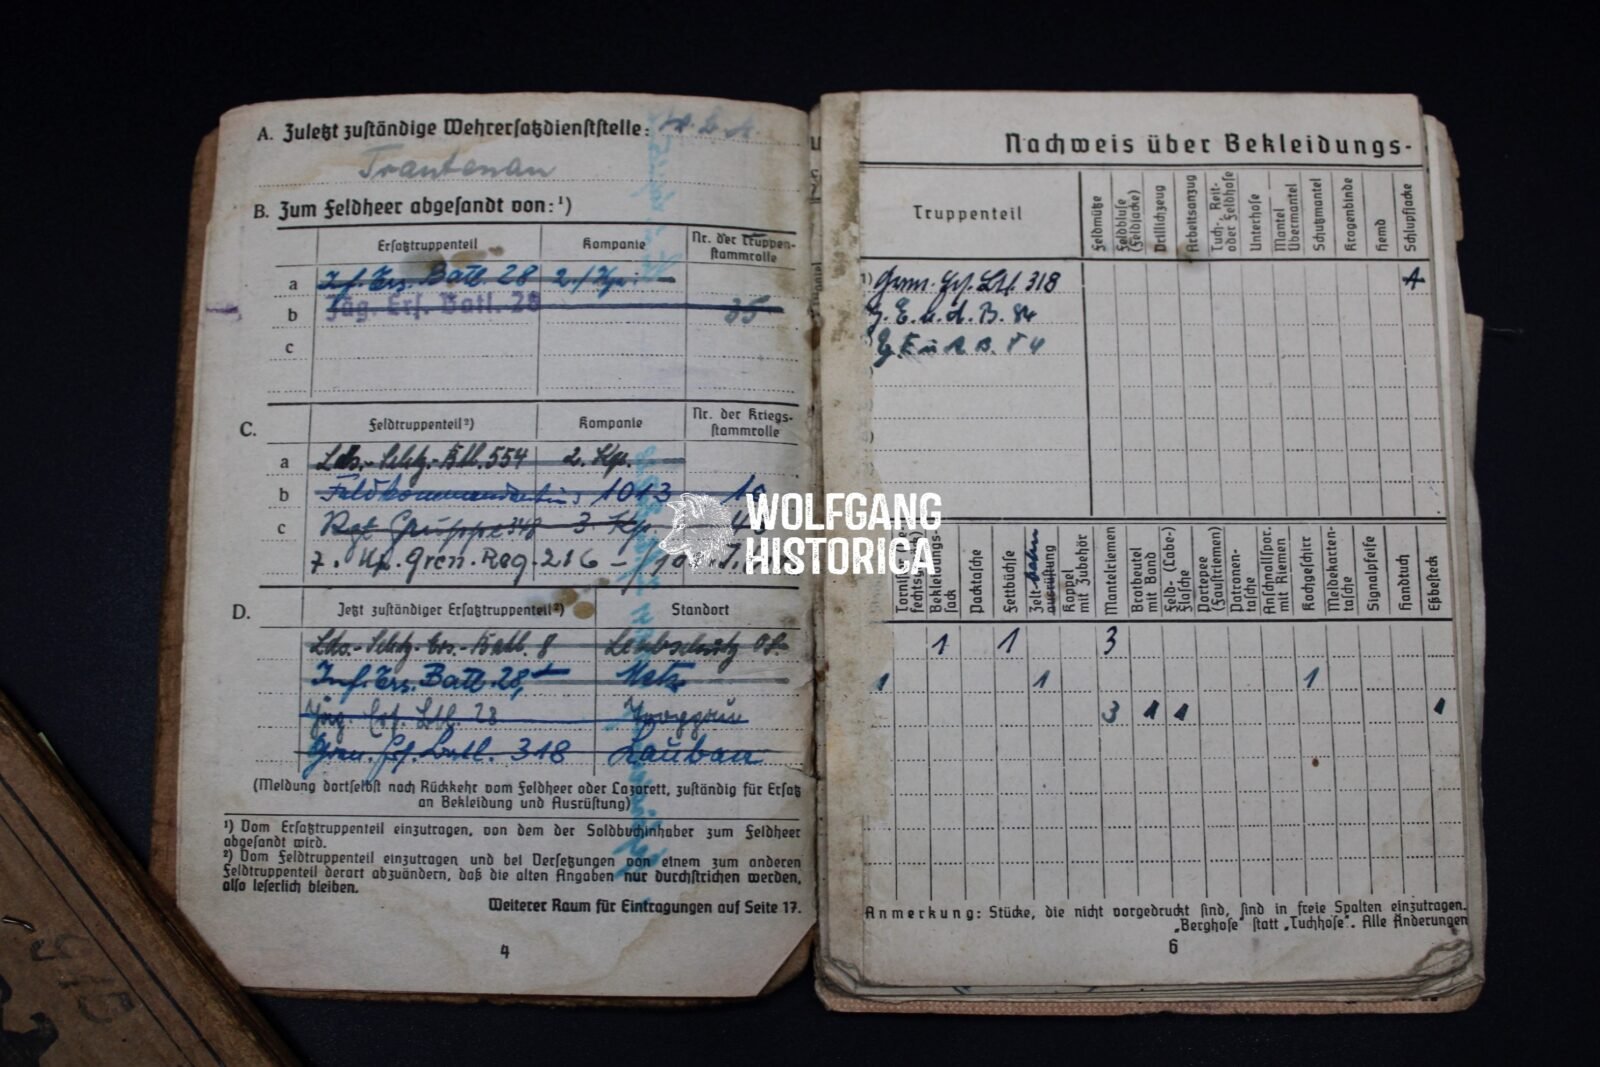 A. Zuletzt zuständige Wehrersatzdienststelle:
Trautenau
B. Zum Feldheer abgesandt von: ¹)
Ersatztruppenteil Kompanie Nr. der Truppen-
stammrolle
a Inf. Ers. Batl. 28 2./
b Jäg. Ers. Batl. 28 35
c
C. Feldtruppenteil ²) Kompanie Nr. der Kriegs-
stammrolle
a Lds.-Schtz.-Btl. 554 2. Kp.
b Feldkommandantur 1013
c Rgt. Gruppe 348 3. Kp.
7. Kp. Gren. Reg. 216
D. Jetzt zuständiger Ersatztruppenteil ²) Standort
Lds.-Schtz.-Ers.-Batl. 8 Leobschütz
Inf. Ers. Batl. 28, Metz
Jäg. Ers. Btl. 28 Troppau
Gren. Ers. Batl. 318 Lauban
(Meldung dortselbst nach Rückkehr vom Feldheer oder Lazarett, zuständig für Ersatz
an Bekleidung und Ausrüstung)
¹) Vom Ersatztruppenteil einzutragen, von dem der Soldbuchinhaber zum Feldheer
abgesandt wird.
²) Vom Feldtruppenteil einzutragen und bei Versetzungen von einem zum anderen
Feldtruppenteil derart abzuändern, daß die alten Angaben nur durchstrichen werden,
also leserlich bleiben.
Weiterer Raum für Eintragungen auf Seite 17.
4
Nachweis über Bekleidungs-
Truppenteil
Feldmütze
Feldbluse
(Feldjacke)
Drillichzeug
Arbeitsanzug
Tuch-, Reit-
oder Feldhose
Unterhose
Mantel
Übermantel
Schutzmantel
Kragenbinde
Hemd
Schlupfjacke
Gren. Ers. Btl. 318
G. E. u. A. B. 84
WOLFGANG
HISTORICA
Bekleidungs-
sack
Packtasche
Fettbüchse
Zeltbahn
ausrüstung
Koppel
mit Zubehör
Mantelriemen
Brotbeutel
mit Band
Feld- (Labe-)
flasche
Portepee
(Faustriemen)
Patronen-
tasche
Anschnallspor.
mit Riemen
Kochgeschirr
Meldekarten-
tasche
Signalpfeife
Handtuch
Eßbesteck
1 1 3
1 1 1
3 1 1 1
Anmerkung: Stücke, die nicht vorgedruckt sind, sind in freie Spalten einzutragen.
„Berghose" statt „Tuchhose". Alle Änderungen
6